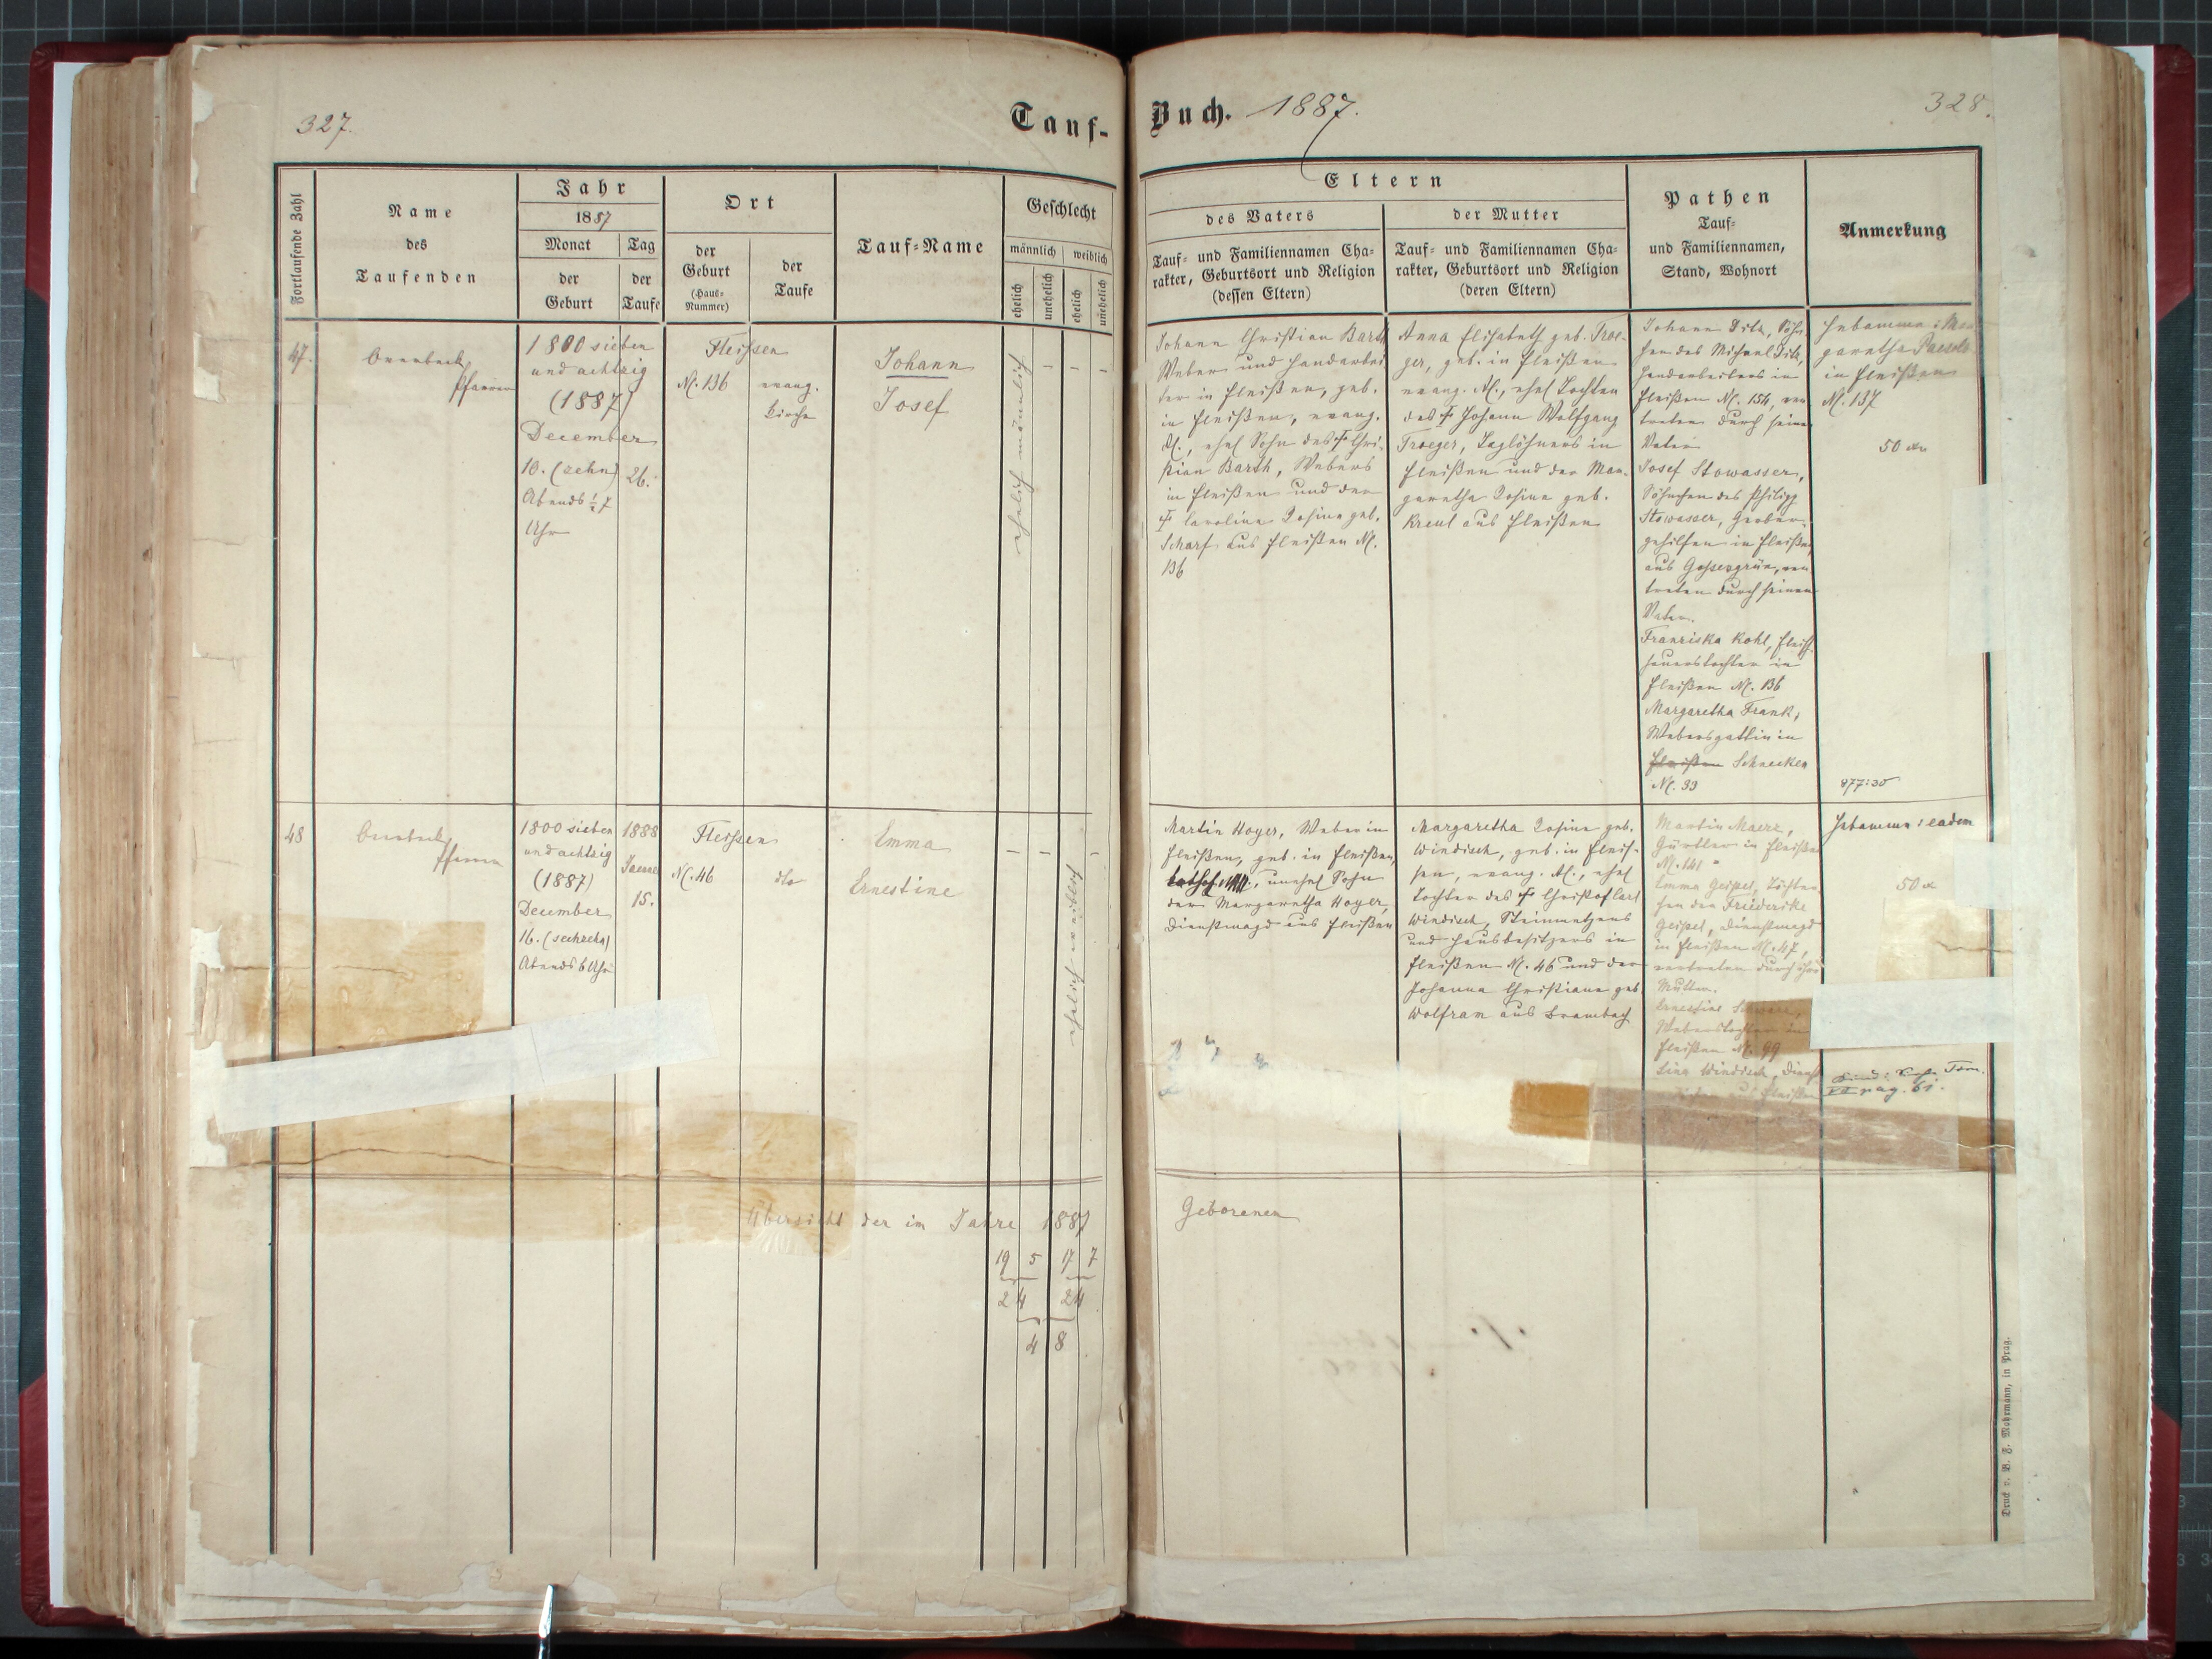 327.
Tauf-
Buch. 1887.
328.
Fortlaufende Zahl
Name
des
Taufenden
Jahr
1887
Monat
der
Geburt
Tag
der
Taufe
Ort
der
Geburt
(Haus-
Nummer)
der
Taufe
Tauf-Name
Geschlecht
männlich
weiblich
ehelich
unehelich
ehelich
unehelich
Eltern
des Vaters
Tauf- und Familiennamen Cha-
rakter, Geburtsort und Religion
(dessen Eltern)
der Mutter
Tauf- und Familiennamen Cha-
rakter, Geburtsort und Religion
(deren Eltern)
Pathen
Tauf-
und Familiennamen,
Stand, Wohnort
Anmerkung
47.
Pfarrer
1800 sieben
und achtzig
(1887)
December
10. (zehn)
Abends ½7
Uhr
26.
Fleissen
N. 136
evang.
Kirche
Johann
Josef
ehelich männlich
Johann Christian Barth
Weber und Handarbei-
ter in Fleißen, geb.
in Fleißen, evang.
ehel Sohn des Chri-
stian Barth, Webers
in Fleißen und der
Carolina Rosina geb.
Scharf aus Fleißen N.
136
Anna Elisabeth geb. Troe-
ger, geb. in Fleißen
evang. ehel Tochter
des Johann Wolfgang
Troeger, Taglöhners in
Fleißen und der Mar-
garetha Rosina geb.
Kreul aus Fleißen
Johann
chen des Michael
Handarbeiters in
Fleißen N. 154, ver
treten durch seinen
Vater
Josef Stowasser,
Söhnchen des Philipp
Stowasser, Gerber-
gehilfen in Fleißen,
aus Gossengrün, ver
treten durch seinen
Vater.
Franziska Kohl, Fleisch-
hauerstochter in
Fleißen N. 136
Margaretha Frank,
Webersgattin in
Fleißen Schnecken
N. 33
Hebamme: Mar
garetha
in Fleißen
N. 137
50
48
Pfarrer
1800 sieben
und achtzig
(1887)
December
16. (sechzehn)
Abends 6 Uhr
1888
15.
Fleissen
N. 46
dto
Emma
Ernestine
ehelich weiblich
Martin Hoyer, Weber in
Fleißen, geb. in Fleißen,
unehel Sohn
der Margaretha Hoyer,
Dienstmagd aus Fleißen
Margaretha Rosina geb.
Windisch, geb. in Fleis-
sen, evang. ehel
Tochter des Christof Carl
Windisch, Steinmetzers
und Hausbesitzers in
Fleißen N. 46 und der
Johanna Christiana geb.
Wolfram aus Brambach
Martin Maerz,
Gürtler in Fleißen
N. 141
Emma Geipel, Töchter-
chen der Friederike
Geipel, Dienstmagd
in Fleißen N. 47,
vertreten durch ihre
Mutter.
Ernestine
Weberstochter in
Fleißen N. 99
Lina Windisch, Dienst
aus Fleißen
Hebamme: eadem
50
Tom.
pag. 61.
Übersicht der im Jahre 1887
Geborenen
19 5 17 7
24 24
48
Druck v. B. F. Mohrmann, in Prag.